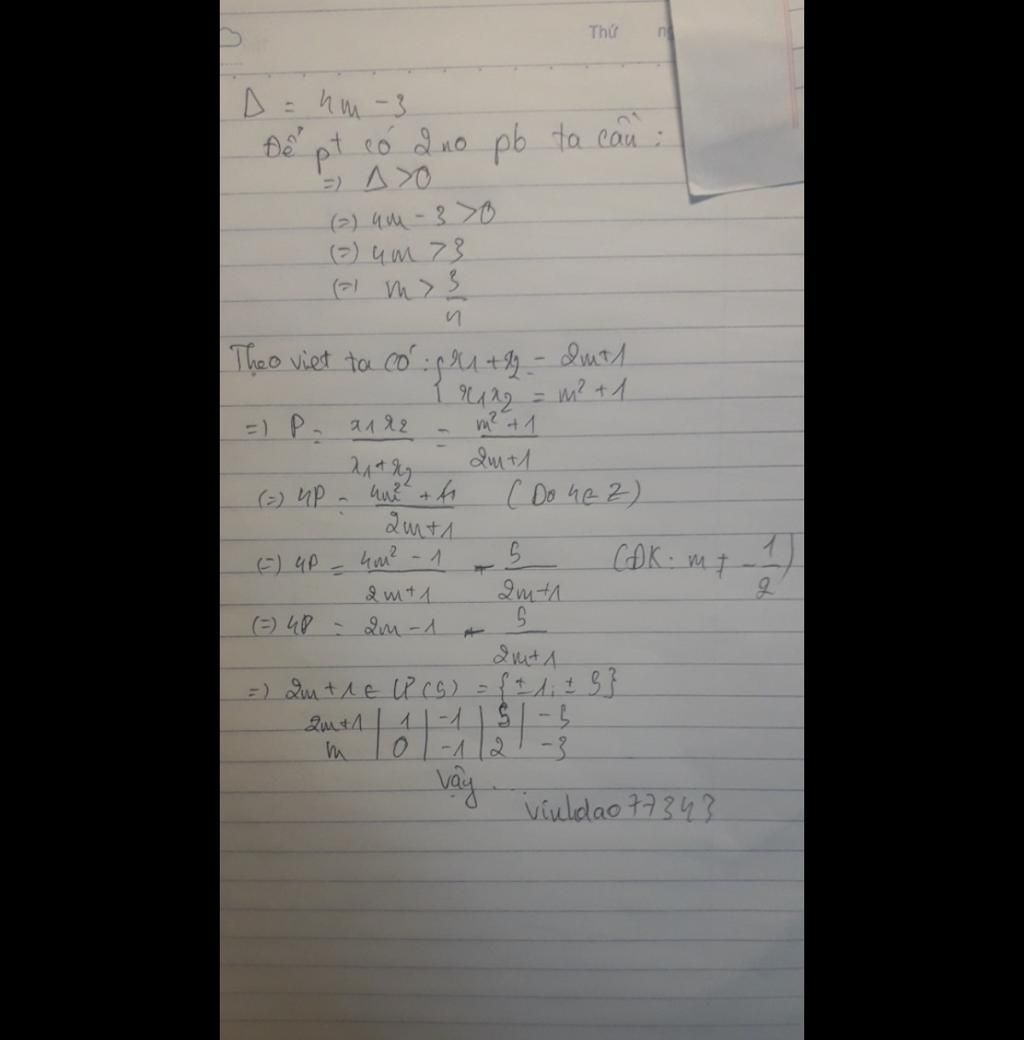 Thứ
Δ = 4m - 3
Để pt có 2 no pb ta cần:
=> Δ>0
(=) 4m - 3 >0
(=) 4m > 3
(=) m > 3/4
Theo viet ta có: { x1 + x2 = 2m+1
x1x2 = m² + 1
=> P = x1x2/(x1+x2) = (m²+1)/(2m+1)
(=) 4P = (4m² + 4)/(2m+1) (Do 4 ∈ Z)
(=) 4P = (4m² - 1)/(2m+1) + 5/(2m+1) (ĐK: m ≠ -1/2)
(=) 4P = 2m - 1 + 5/(2m+1)
=> 2m+1 ∈ Ư(5) = {±1; ±5}
2m+1 | 1 | -1 | 5 | -5
m | 0 | -1 | 2 | -3
Vậy...
vinhdao77343